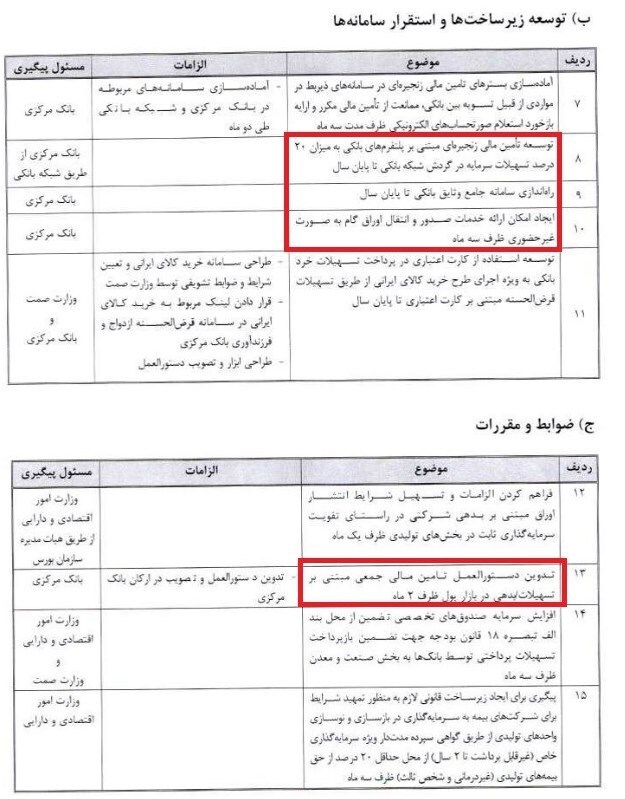 ب) توسعه زیرساخت‌ها و استقرار سامانه‌ها
ردیف موضوع الزامات مسئول پیگیری
۷
آماده‌سازی بسترهای تامین مالی زنجیره‌ای در سامانه‌های ذیربط در
مواردی از قبیل تسویه بین بانکی، ممانعت از تأمین مالی مکرر و ارایه
بازخورد استعلام صورتحساب‌های الکترونیکی ظرف مدت سه ماه
- آماده‌سازی سامانه‌های مربوطه
در بانک مرکزی و شبکه بانکی
طی دو ماه
بانک مرکزی
۸
توسعه تأمین مالی زنجیره‌ای مبتنی بر پلتفرم‌های بانکی به میزان ۲۰
درصد تسهیلات سرمایه در گردش شبکه بانکی تا پایان سال
بانک مرکزی از
طریق شبکه بانکی
۹
راه‌اندازی سامانه جامع وثایق بانکی تا پایان سال
بانک مرکزی
۱۰
ایجاد امکان ارائه خدمات صدور و انتقال اوراق گام به صورت
غیرحضوری ظرف سه ماه
بانک مرکزی
۱۱
توسعه استفاده از کارت اعتباری در پرداخت تسهیلات خرد
بانکی به ویژه اجرای طرح خرید کالای ایرانی از طریق تسهیلات
قرض‌الحسنه مبتنی بر کارت اعتباری تا پایان سال
- طراحی سامانه خرید کالای ایرانی و تعیین
شرایط و ضوابط تشویقی توسط وزارت صمت
- قرار دادن لینک مربوط به خرید کالای
ایرانی در سامانه قرض‌الحسنه ازدواج و
فرزندآوری بانک مرکزی
- طراحی ابزار و تصویب دستورالعمل
وزارت صمت
و
بانک مرکزی
ج) ضوابط و مقررات
ردیف موضوع الزامات مسئول پیگیری
۱۲
فراهم کردن الزامات و تسهیل شرایط انتشار
اوراق مبتنی بر بدهی شرکتی در راستای تقویت
سرمایه‌گذاری ثابت در بخش‌های تولیدی ظرف یک ماه
وزارت امور
اقتصادی و دارایی
از طریق هیات مدیره
سازمان بورس
۱۳
تدوین دستورالعمل تامین مالی جمعی مبتنی بر
تسهیلات/بدهی در بازار پول ظرف ۲ ماه
- تدوین دستورالعمل و تصویب در ارکان بانک
مرکزی
بانک مرکزی
۱۴
افزایش سرمایه صندوق‌های تخصصی تضمین از محل بند
الف تبصره ۱۸ قانون بودجه جهت تضمین بازپرداخت
تسهیلات پرداختی توسط بانک‌ها به بخش صنعت و معدن
ظرف سه ماه
وزارت امور
اقتصادی و دارایی
و
وزارت صمت
۱۵
پیگیری برای ایجاد زیرساخت قانونی لازم به منظور تمهید شرایط
برای شرکت‌های بیمه به سرمایه‌گذاری در بازسازی و نوسازی
واحدهای تولیدی از طریق گواهی سپرده مدت‌دار ویژه سرمایه‌گذاری
خاص (غیرقابل برداشت تا ۲ سال) از محل حداقل ۲۰ درصد از حق
بیمه‌های تولیدی (غیردرمانی و شخص ثالث) ظرف سه ماه
وزارت امور
اقتصادی و دارایی